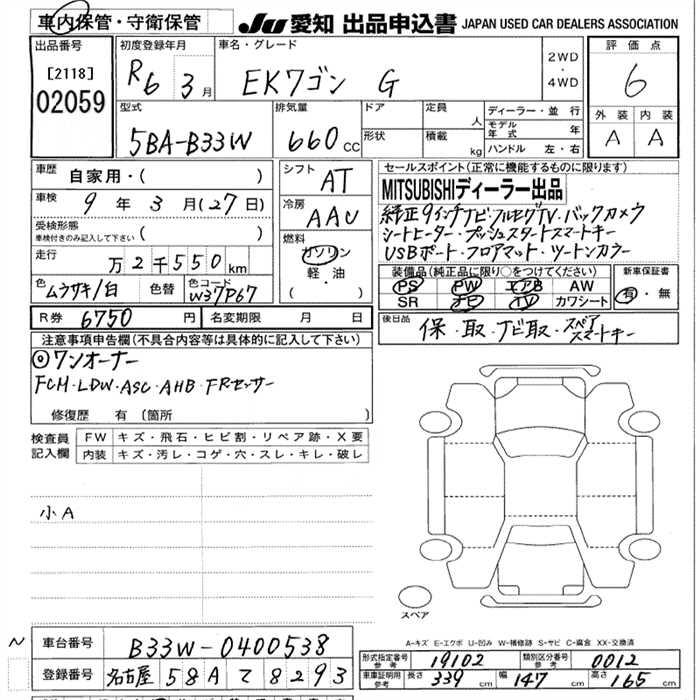 車内保管・守衛保管 JU 愛知 出品申込書 JAPAN USED CAR DEALERS ASSOCIATION
出品番号 初度登録年月 車名・グレード 評価点
[2118] R6 3月 EKワゴン G 2WD・4WD 6
02059 型式 排気量 ドア 定員 人 ディーラー・並行 外装 内装
5BA-B33W 660cc 形状 積載 kg モデル年式 年 A A
ハンドル 左・右
車歴 自家用・( ) シフト AT セールスポイント(正常に機能するものに限ります)
車検 9年3月(27日) 冷房 AAC MITSUBISHIディーラー出品
受検形態 車検付きのみ記入して下さい ( ) 燃料 純正9インチナビ・フルセグTV・バックカメラ
走行 万2千550km ガソリン シートヒーター・プッシュスタートスマートキー
軽・油 USBポート・フロアマット・ツートンカラー
色 ムラサキ/白 色替 色コード W37P67 ( ) 装備品(純正品に限り○をつけてください) 新車保証書
PS PW エアB AW 有・無
SR ナビ TV カワシート
R券 6750円 名変期限 月 日 後日品 保・取・ナビ取・スペアスマートキー
注意事項申告欄(不具合内容等は具体的に記入して下さい)
◎ワンオーナー
FCM・LDW・ASC・AHB・FRセンサー
修復歴 有 (箇所 )
検査員記入欄 FW キズ・飛石・ヒビ割・リペア跡・X要
内装 キズ・汚レ・コゲ・穴・スレ・キレ・破レ
小A
スペア
A-キズ E-エクボ U-凹み W-補修跡 S-サビ C-腐食 XX-交換済
~ 車台番号 B33W-0400538 形式指定番号 参考 19102 類別区分番号 参考 0012
登録番号 名古屋 58A て8293 車庫証明用 参考 長さ 339cm 幅 147cm 高さ 165cm